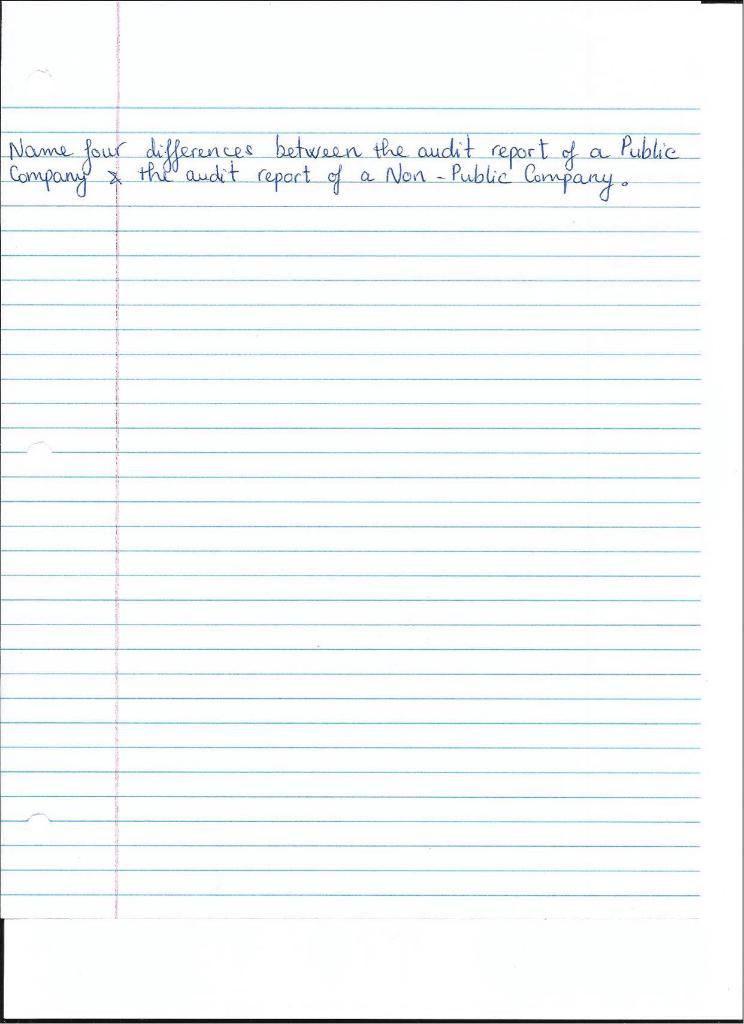 Name four differences between the audit report of a Public
Company & the audit report of a Non-Public Company.